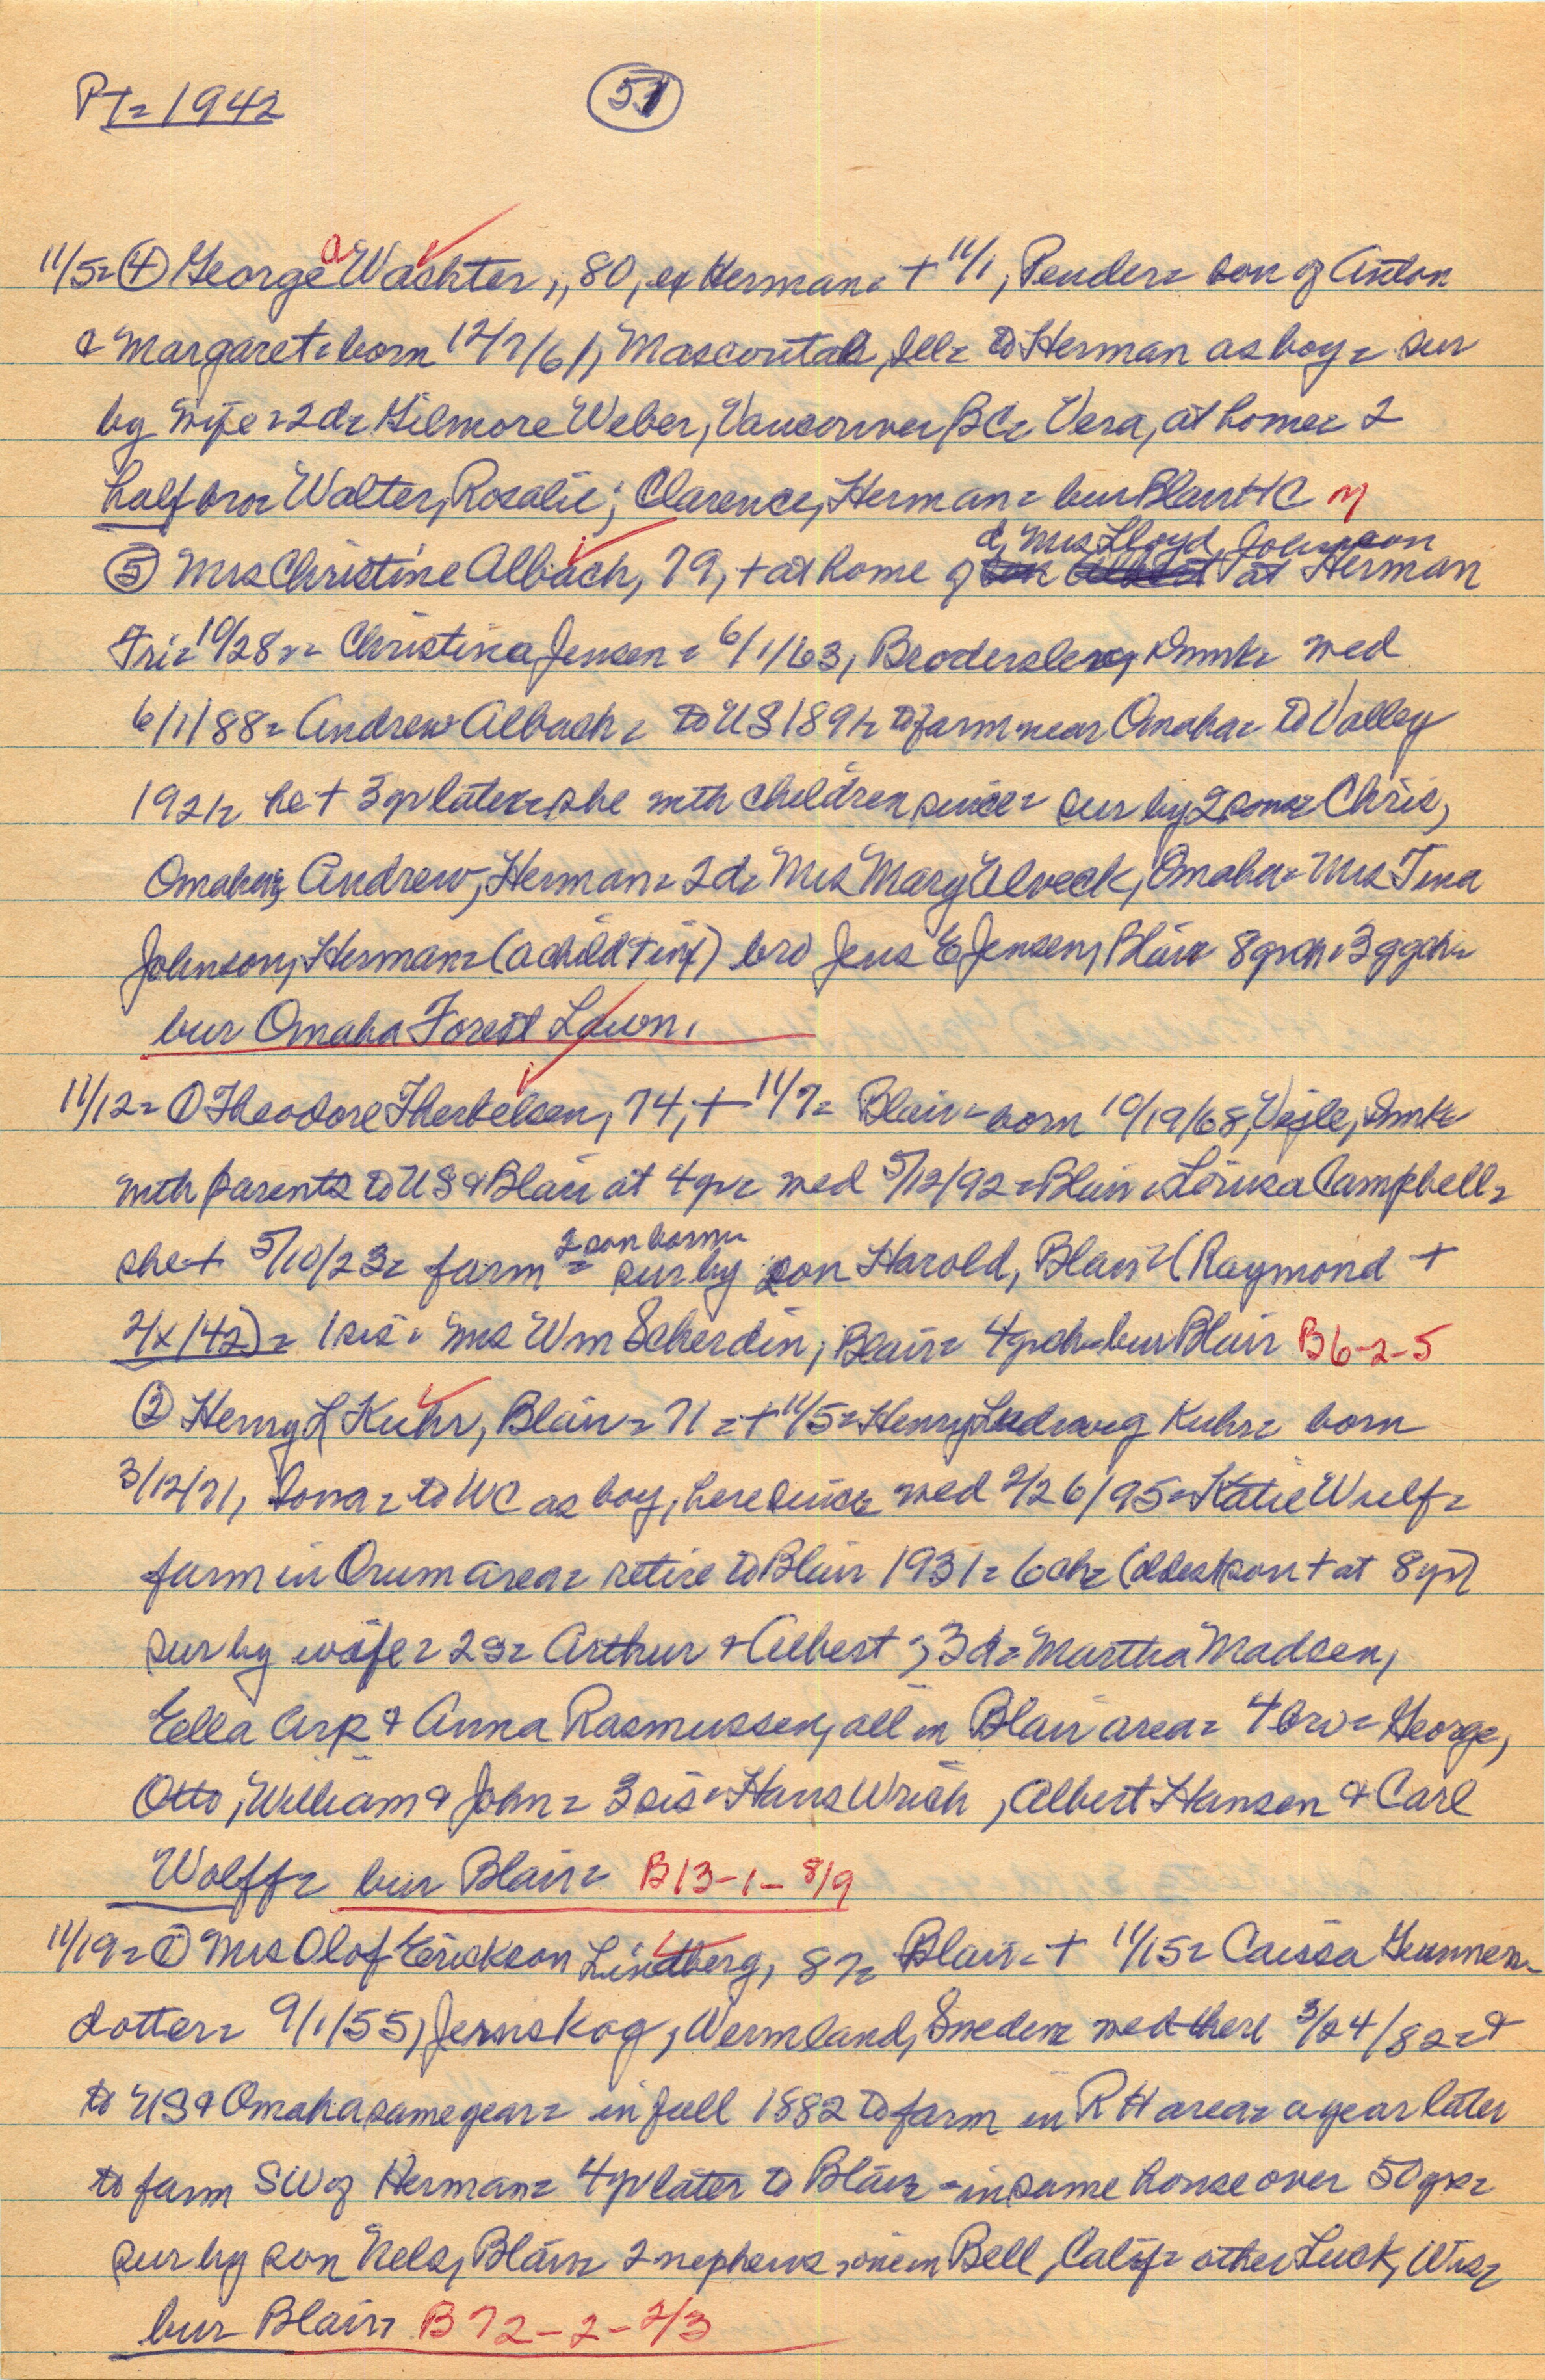 PT= 1942
51
11/5= ④ George Wachter, 80, ex Herman= + 11/1, Pender= son of Anton
& Margaret= born 12/7/61, Mascoutah, Ill= to Herman as boy= sur
by wife= 2d= Gilmore Weber, Vancouver BC= Vera, at home= 2
half bro= Walter, Rosalie; Clarence, Herman= bur Blair HC n
d, Mrs Lloyd Johnson
⑤ Mrs Christine Albach, 79, + at home of at Herman
Fri= 10/28= Christina Jensen= 6/1/63, Brodersleng Dnmk= wed
6/1/88= Andrew Albach= to US 1891= to farm near Omaha= to Valley
1921= he + 3 yr later= she with children since= sur by 2 sons= Chris,
Omaha; Andrew, Herman= 2d= Mrs Mary Ulveck, Omaha= Mrs Tina
Johnson, Herman= (a child + inf) bro Jens E Jensen, Blair 8 grch= 3 ggch=
bur Omaha Forest Lawn.
11/12= ① Theodore Therkelsen, 74, + 11/7= Blair= born 10/19/68, Vejle, Dnmk=
with parents to US & Blair at 4 yr= wed 5/12/92= Blair= Lovisa Campbell=
2 son born=
she + 5/10/23= farm= sur by son Harold, Blair= (Raymond +
2/x/42)= 1 sis= Mrs Wm Scherdin, Blair= 4 grch= bur Blair B6-2-5
② Henry L Kuhr, Blair= 71= + 11/5= Henry Ludewig Kuhr= born
3/12/71, Iowa= to WC as boy, here since= wed 2/26/95= Katie Wulf=
farm in Orum area= retire to Blair 1931= 6 ch= (oldest son + at 8 yr)
sur by wife= 2s= Arthur & Albert; 3d= Martha Madsen,
Ella Arp & Anna Rasmussen, all in Blair area= 4 bro= George,
Otto, William & John= 3 sis= Hans Wrich, Albert Hansen & Carl
Wolff= bur Blair= B13-1-8/9
11/19= ① Mrs Olof Erickson Lindberg, 87= Blair= + 11/15= Caissa Gunnen-
dotter= 9/1/55, Jernskog, Wermland, Sweden= wed there 3/24/82= &
to US & Omaha same year= in fall 1882 to farm in RH area= a year later
to farm SW of Herman= 4 yr later to Blair= in same house over 50 yrs=
sur by son Nels, Blair= 2 nephews, one in Bell, Calif= other Luck, Wis=
bur Blair= B72-2-2/3